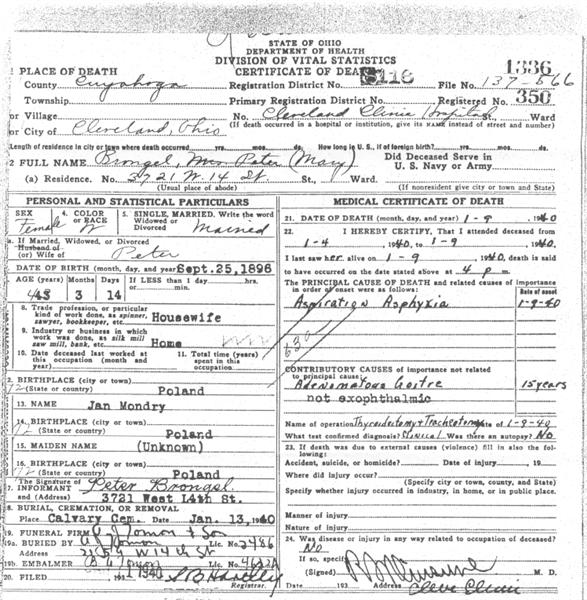 STATE OF OHIO
DEPARTMENT OF HEALTH
DIVISION OF VITAL STATISTICS
CERTIFICATE OF DEATH
1336
1 PLACE OF DEATH
County Cuyahoga
Registration District No. 8116
File No. 137-866
Township
Primary Registration District No.
Registered No. 350
or Village
No. Cleveland Clinic Hospital St., Ward
or City of Cleveland, Ohio
(If death occurred in a hospital or institution, give its NAME instead of street and number)
Length of residence in city or town where death occurred yrs. mos. ds.
How long in U. S., if of foreign birth? yrs. mos. ds.
2 FULL NAME Brongel, Mrs Peter (Mary)
Did Deceased Serve in
U. S. Navy or Army.
(a) Residence. No. 3721 W. 14 St. St., Ward.
(Usual place of abode)
(If nonresident give city or town and State)
PERSONAL AND STATISTICAL PARTICULARS
SEX Female
4. COLOR or RACE W
5. SINGLE, MARRIED. Write the word
Widowed or Divorced Married
a. If Married, Widowed, or Divorced
Husband of
(or) Wife of Peter
DATE OF BIRTH (month, day, and year) Sept. 25, 1896
AGE (years) 43 Months 3 Days 14
If LESS than 1 day.
hrs.
or min.
8. Trade profession, or particular
kind of work done, as spinner,
sawyer, bookkeeper, etc. Housewife
9. Industry or business in which
work was done, as silk mill
saw mill, bank, etc. Home
10. Date deceased last worked at
this occupation (month and
year)
11. Total time (years)
spent in this
occupation
2. BIRTHPLACE (city or town)
(State or country) Poland
13. NAME Jan Mondry
14. BIRTHPLACE (city or town)
(State or country) Poland
15. MAIDEN NAME (Unknown)
16. BIRTHPLACE (city or town)
(State or country) Poland
The Signature of
7. INFORMANT Peter Brongel
and (Address) 3721 West 14th St.
8. BURIAL, CREMATION, OR REMOVAL
Place Calvary Cem. Date Jan. 13, 1940
19. FUNERAL FIRM & Son
19a. BURIED BY Lic. No. 2486
Address W 14th St
19b. EMBALMER Lic. No.
20. FILED 1940
Registrar.
MEDICAL CERTIFICATE OF DEATH
21. DATE OF DEATH (month, day, and year) 1-9 1940
22. I HEREBY CERTIFY, That I attended deceased from
1-4 1940, to 1-9 1940.
I last saw her alive on 1-9 1940, death is said
to have occurred on the date stated above at 4 p m.
The PRINCIPAL CAUSE OF DEATH and related causes of importance
in order of onset were as follows:
Date of onset
Aspiration Asphyxia 1-9-40
CONTRIBUTORY CAUSES of importance not related
to principal cause:
Adenomatous Goitre 15 years
not exophthalmic
Name of operation Thyroidectomy + Tracheotomy Date of 1-9-40
What test confirmed diagnosis? Clinical Was there an autopsy? No
23. If death was due to external causes (violence) fill in also the following:
Accident, suicide, or homicide? Date of injury , 19
Where did injury occur?
(Specify city or town, county, and State)
Specify whether injury occurred in industry, in home, or in public place.
Manner of injury
Nature of injury
24. Was disease or injury in any way related to occupation of deceased?
No
If so, specify
(Signed) M. D.
Date 193 Address Cleve Clinic